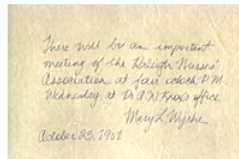 There will be an important
meeting of the Raleigh Nurses'
Association at four oclock P.M.
Wednesday, at Dr A.W. Knox's office
Mary L Wyche
October 23, 1901